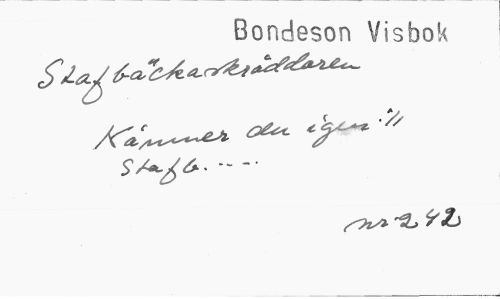 Bondeson Visbok
Stafbäckaskräddaren
Känner du igen ://
Stafb. ----.
nr 242